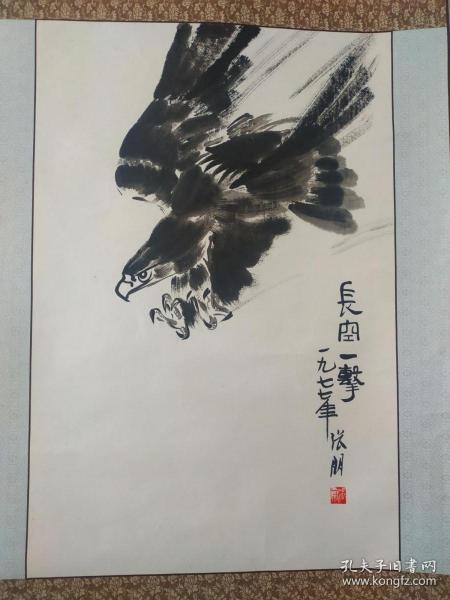 長空一擊
一九七七年
张朋
孔夫子旧书网
www.kongfz.com